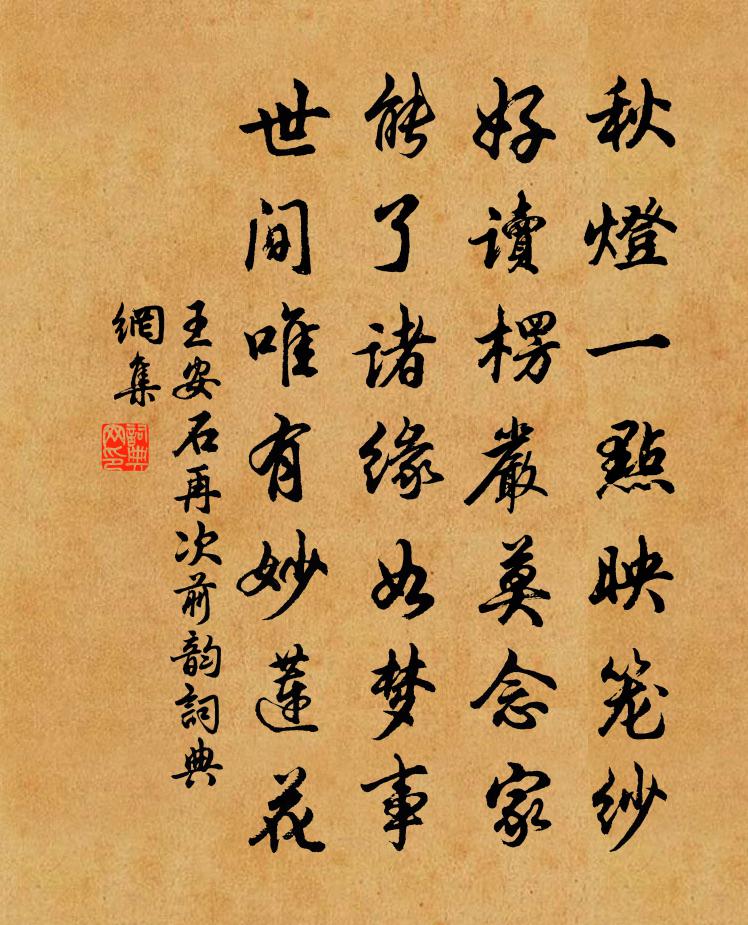 秋燈一點映笼紗
好讀楞嚴莫念家
能了諸緣如梦事
世间唯有妙蓮花
王安石再次前韵詞典
網集
詞典
网印